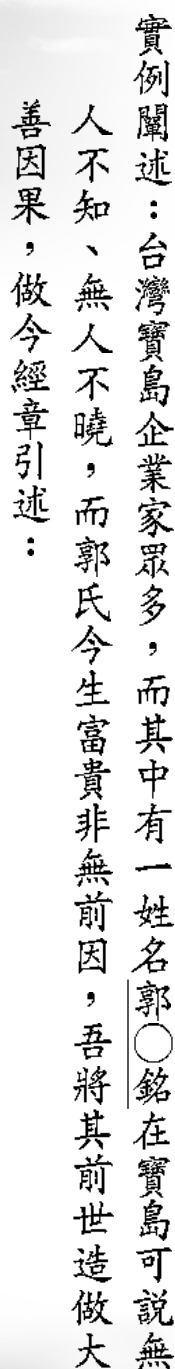 實例闡述：台灣寶島企業家眾多，而其中有一姓名郭○銘在寶島可說無
人不知、無人不曉，而郭氏今生富貴非無前因，吾將其前世造做大
善因果，做今經章引述：